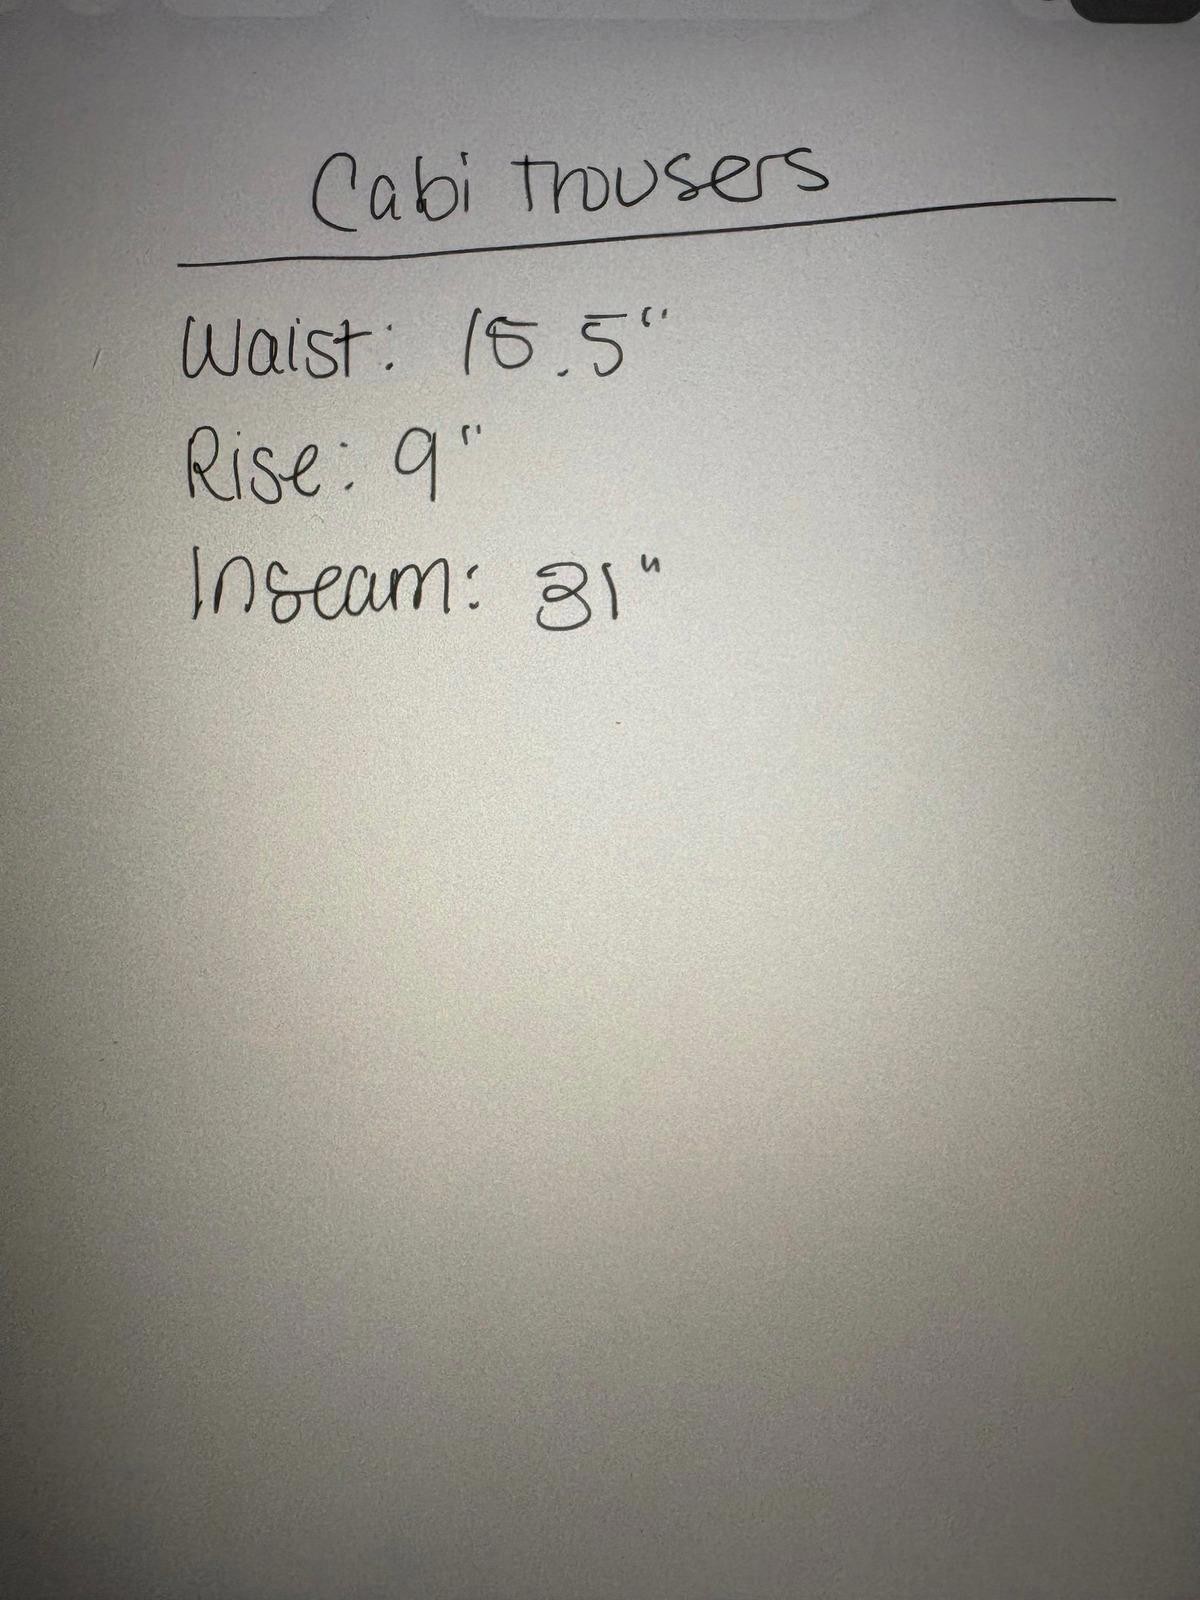 Cabi Trousers
Waist: 15.5"
Rise: 9"
Inseam: 31"